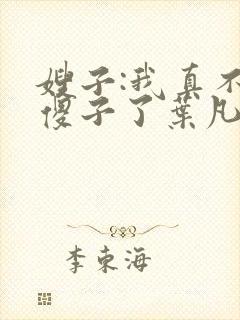 嫂子:我真不
傻子了葉凡
李東海